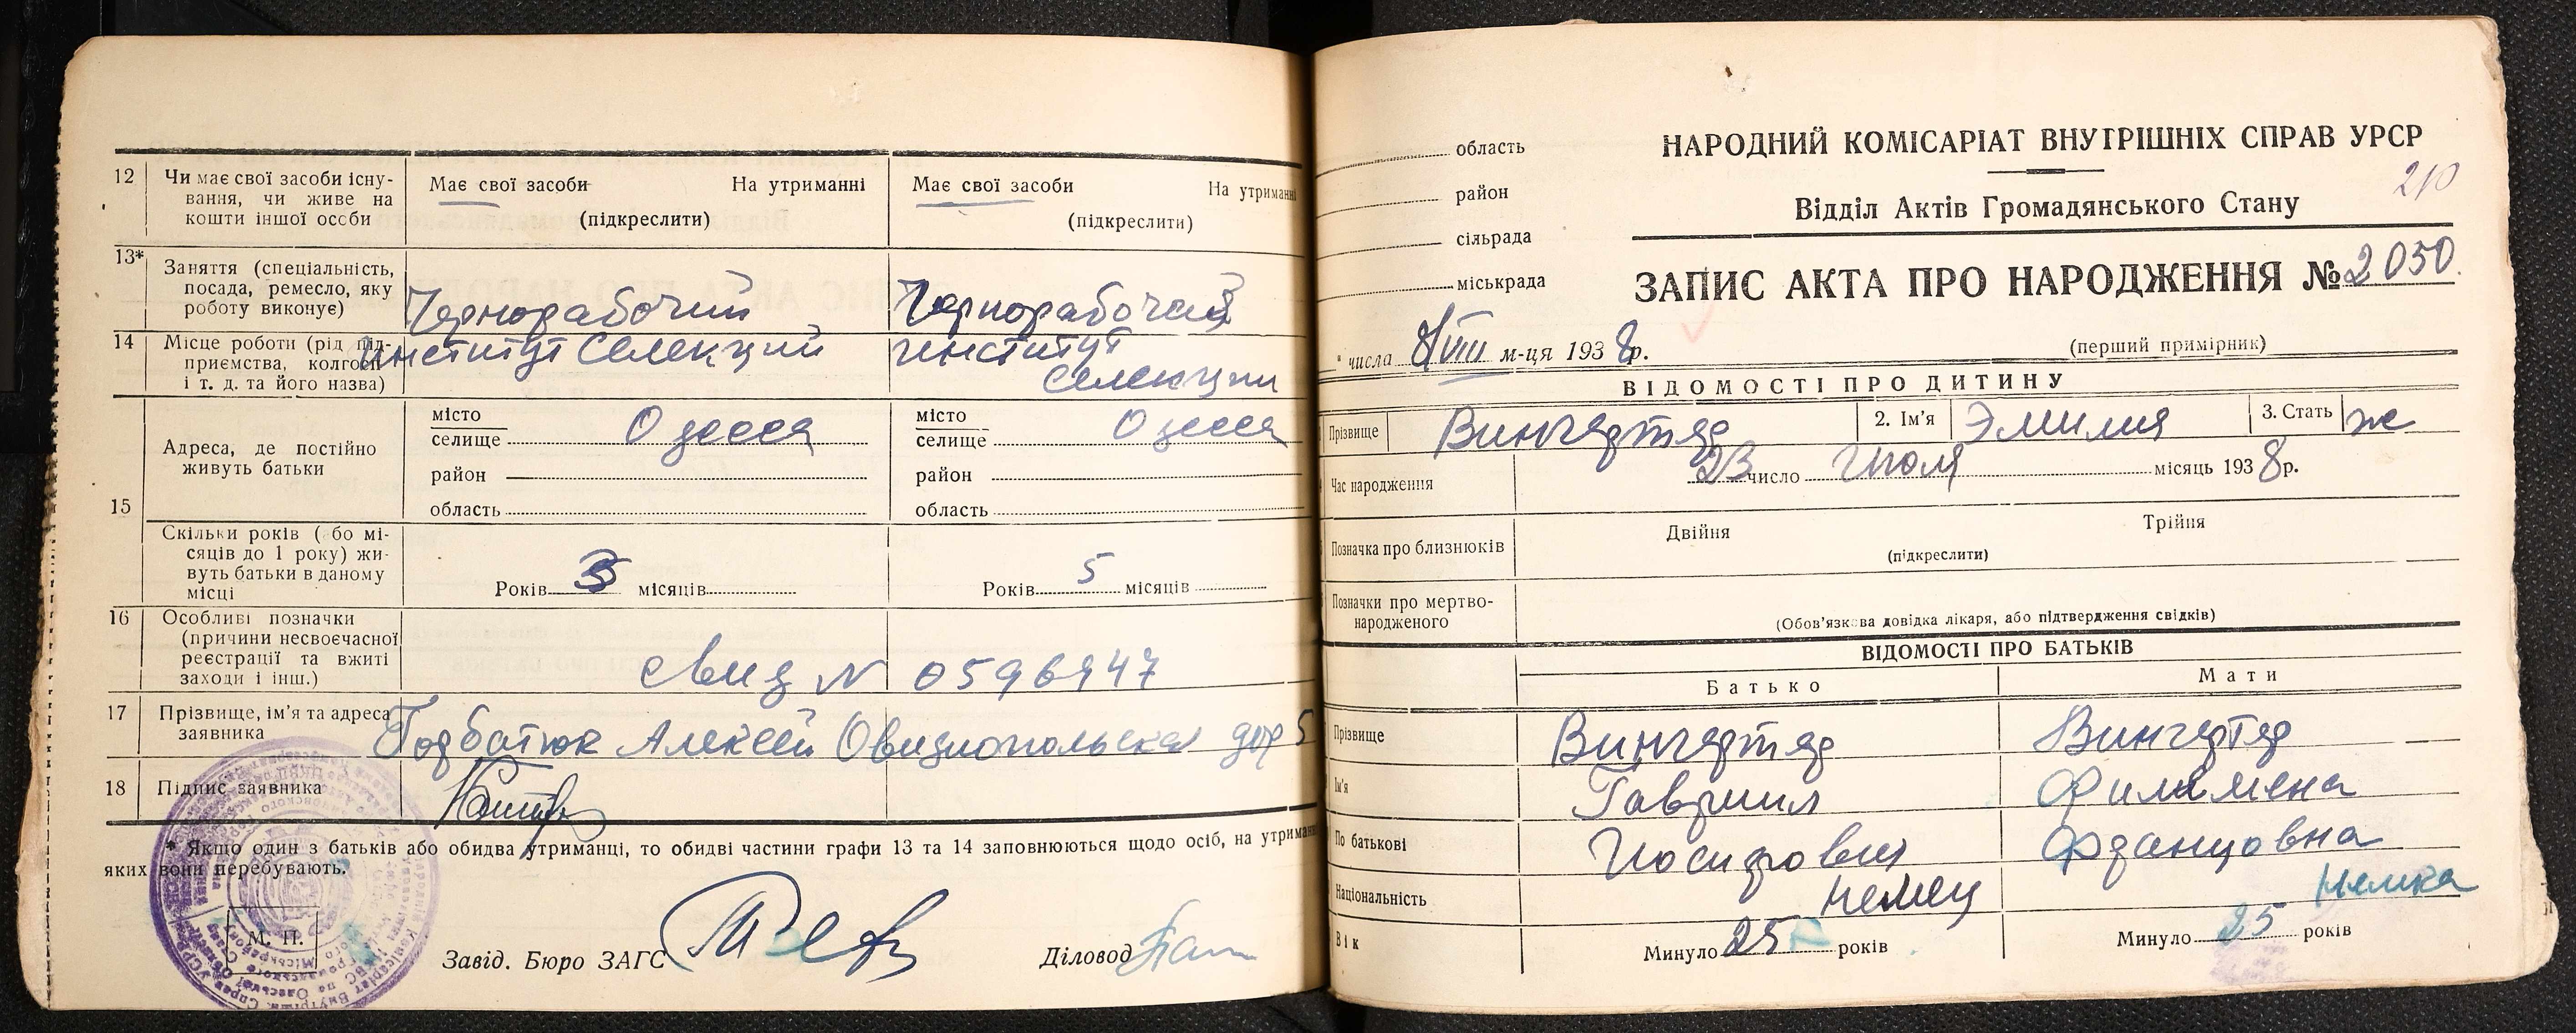 12 Чи має свої засоби існу-
вання, чи живе на
кошти іншої особи
Має свої засоби На утриманні
(підкреслити)
Має свої засоби На утриманні
(підкреслити)
13* Заняття (спеціальність,
посада, ремесло, яку
роботу виконує)
Чернорабочий
Чернорабочий
14 Місце роботи (рід під-
приємства, колгосп
і т. д. та його назва)
Институт Селекций
институт
Селекции
15 Адреса, де постійно
живуть батьки
місто
селище Одесса
район
область
місто
селище Одесса
район
область
Скільки років ( бо мі-
сяців до 1 року) жи-
вуть батьки в даному
місці
Років 5 місяців
Років 5 місяців
16 Особливі позначки
(причини несвоєчасної
реєстрації та вжиті
заходи і інш.)
Свид N 0596947
17 Прізвище, ім'я та адреса
заявника
Подбатюк Алексей Овидиопольская дор 5
18 Підпис заявника
* Якщо один з батьків або обидва утриманці, то обидві частини графи 13 та 14 заповнюються щодо осіб, на утриманні
яких вони перебувають.
М. П.
Завід. Бюро ЗАГС
Діловод
область
район
сільрада
міськрада
НАРОДНИЙ КОМІСАРІАТ ВНУТРІШНІХ СПРАВ УРСР
210
Відділ Актів Громадянського Стану
ЗАПИС АКТА ПРО НАРОДЖЕННЯ № 2050
" числа 8/VIII м-ця 1938р.
(перший примірник)
ВІДОМОСТІ ПРО ДИТИНУ
Прізвище Вингертер 2. Ім'я Эмилия 3. Стать ж
Час народження 23 число Июля місяць 1938р.
Позначка про близнюків Двійня Трійня
(підкреслити)
Позначки про мертво-
народженого
(Обов'язкова довідка лікаря, або підтвердження свідків)
ВІДОМОСТІ ПРО БАТЬКІВ
Батько Мати
Прізвище Вингертер Вингертер
Ім'я Гавриил Филимена
По батькові Иосифович Францовна
Національність немец Немка
Вік Минуло 25 років Минуло 25 років